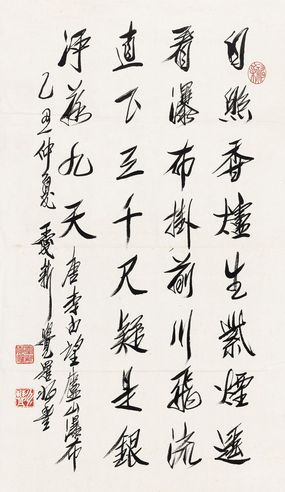 日照香爐生紫煙遥
看瀑布掛前川飛流
直下三千尺疑是銀
河落九天 唐李白望廬山瀑布
乙丑仲夏 愛新覺羅